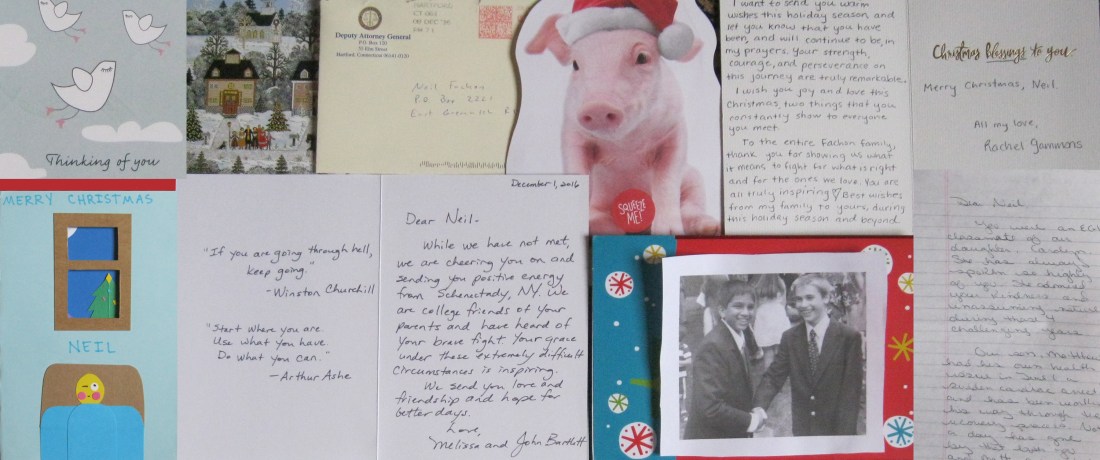 Thinking of you
Deputy Attorney General
P.O. Box 120
55 Elm Street
Hartford, Connecticut 06141-0120
Neil Fachon
P.O. Box 222
East Greenwich R
SQUEEZE
ME!
I want to send you warm
wishes this holiday season, and
let you know that you have
been, and will continue to be, in
my prayers. Your strength,
courage, and perseverance on
this journey are truly remarkable.
I wish you joy and love this
Christmas, two things that you
constantly show to everyone
you meet.
To the entire Fachon family,
thank you for showing us what
it means to fight for what is right
and for the ones we love. You are
all truly inspiring ♡ Best wishes
from my family to yours, during
this holiday season and beyond
Christmas blessings to you.
Merry Christmas, Neil.
All my love,
Rachel Gammons
MERRY CHRISTMAS
NEIL
"If you are going through hell,
keep going."
- Winston Churchill
"Start where you are.
Use what you have.
Do what you can."
- Arthur Ashe
December 1, 2016
Dear Neil-
While we have not met,
we are cheering you on and
sending you positive energy
from Schenectady, NY. We
are college friends of your
parents and have heard of
your brave fight. Your grace
under these extremely difficult
circumstances is inspiring.
We send you love and
friendship and hope for
better days.
Love,
Melissa and John Bartlett
Dear Neil,
You were an EG
classmate of our
daughter
She has always
spoken so highly
of you. She admires
your kindness and
during many
challenging
Our son, Matthew
had his own health
sudden cardiac arrest
and has been
his way through the
recovery process. Not
a day has gone